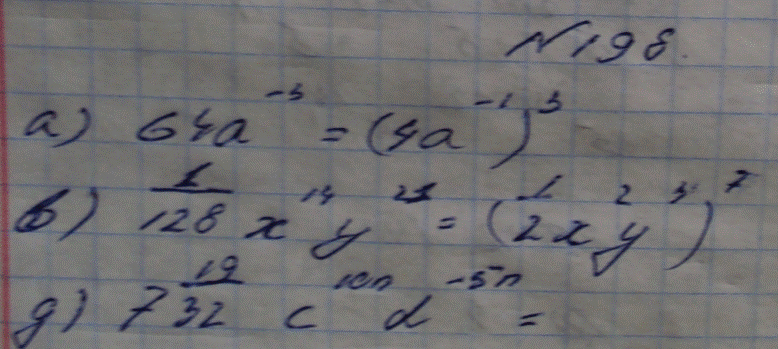 №198.
а) 64a⁻³ = (4a⁻¹)³
в) 1/128 x¹⁴ y²¹ = (1/2 x² y³)⁷
д) 7 19/32 c¹⁰ⁿ d⁻⁵ⁿ =